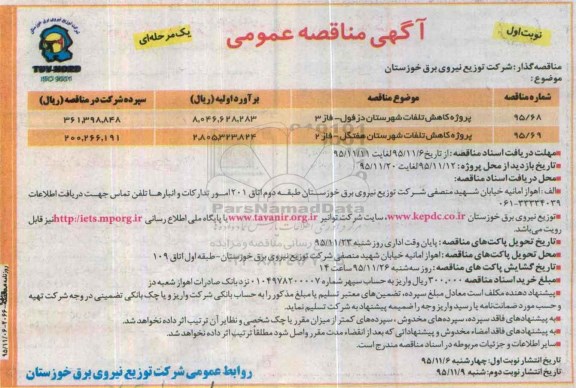 نوبت اول
آگهی مناقصه عمومی
یک مرحله‌ای
شرکت توزیع نیروی برق خوزستان
TUV-NORD
ISO 9001
مناقصه گذار: شرکت توزیع نیروی برق خوزستان
موضوع:
شماره مناقصه موضوع مناقصه برآورد اولیه (ریال) سپرده شرکت در مناقصه (ریال)
۹۵/۶۸ پروژه کاهش تلفات شهرستان دزفول- فاز ۳ ۸,۰۴۶,۶۲۸,۲۸۳ ۳۶۱,۳۹۸,۸۴۸
۹۵/۶۹ پروژه کاهش تلفات شهرستان هفتگل- فاز ۲ ۲,۸۰۵,۳۲۳,۸۲۴ ۲۰۰,۲۶۶,۱۹۱
مهلت دریافت اسناد مناقصه: از تاریخ ۹۵/۱۱/۶ لغایت ۹۵/۱۱/۱۱
تاریخ بازدید از محل پروژه: ۹۵/۱۱/۱۲ لغایت ۹۵/۱۱/۲۰
محل دریافت اسناد مناقصه:
الف: اهواز امانیه خیابان شهید منصفی شرکت توزیع نیروی برق خوزستان طبقه دوم اتاق ۲۰۱ امور تدارکات و انبارها تلفن تماس جهت دریافت اطلاعات
۰۶۱-۳۳۳۳۴۰۳۹
توزیع نیروی برق خوزستان www.kepdc.co.ir، سایت شرکت توانیر www.tavanir.org.ir یا پایگاه ملی اطلاع رسانی http://iets.mporg.ir نیز قابل
رویت می‌باشد.
تاریخ تحویل پاکت‌های مناقصه: پایان وقت اداری روز شنبه ۹۵/۱۱/۲۳
محل تحویل پاکت‌های مناقصه: اهواز امانیه خیابان شهید منصفی شرکت توزیع نیروی برق خوزستان - طبقه اول اتاق ۱۰۹
تاریخ گشایش پاکت های مناقصه: روز سه شنبه ۹۵/۱۱/۲۶ ساعت ۱۴
مبلغ خرید اسناد مناقصه: ۳۰۰,۰۰۰ ریال واریز به حساب سپهر شماره ۰۱۰۴۹۷۸۲۰۰۰۰۷ نزد بانک صادرات اهواز شعبه دز
پیشنهاد دهنده مکلف است معادل مبلغ سپرده، تضمین‌های معتبر تسلیم یا مبلغ مذکور را به حساب بانکی شرکت واریز و یا چک بانکی تضمینی در وجه شرکت تهیه
و حسب مورد ضمانت‌نامه یا رسید واریز وجه را ضمیمه پیشنهاد به شرکت تسلیم نماید.
به پیشنهادهای فاقد سپرده، سپرده‌های مخدوش، سپرده‌های کمتر از میزان مقرر یا چک شخصی و نظایر آن ترتیب اثر داده نخواهد شد.
به پیشنهادهای فاقد امضاء، مخدوش و پیشنهاداتی که بعد از انقضاء مدت مقرر واصل شود مطلقاً ترتیب اثر داده نخواهد شد.
سایر اطلاعات و جزئیات مربوطه در اسناد مناقصه مندرج است.
تاریخ انتشار نوبت اول: چهارشنبه ۹۵/۱۱/۶
تاریخ انتشار نوبت دوم: شنبه ۹۵/۱۱/۹
روابط عمومی شرکت توزیع نیروی برق خوزستان
ParsNamadData